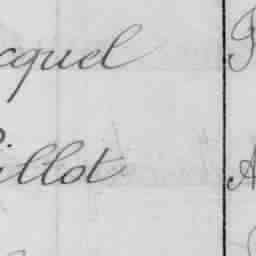 cquel
illot